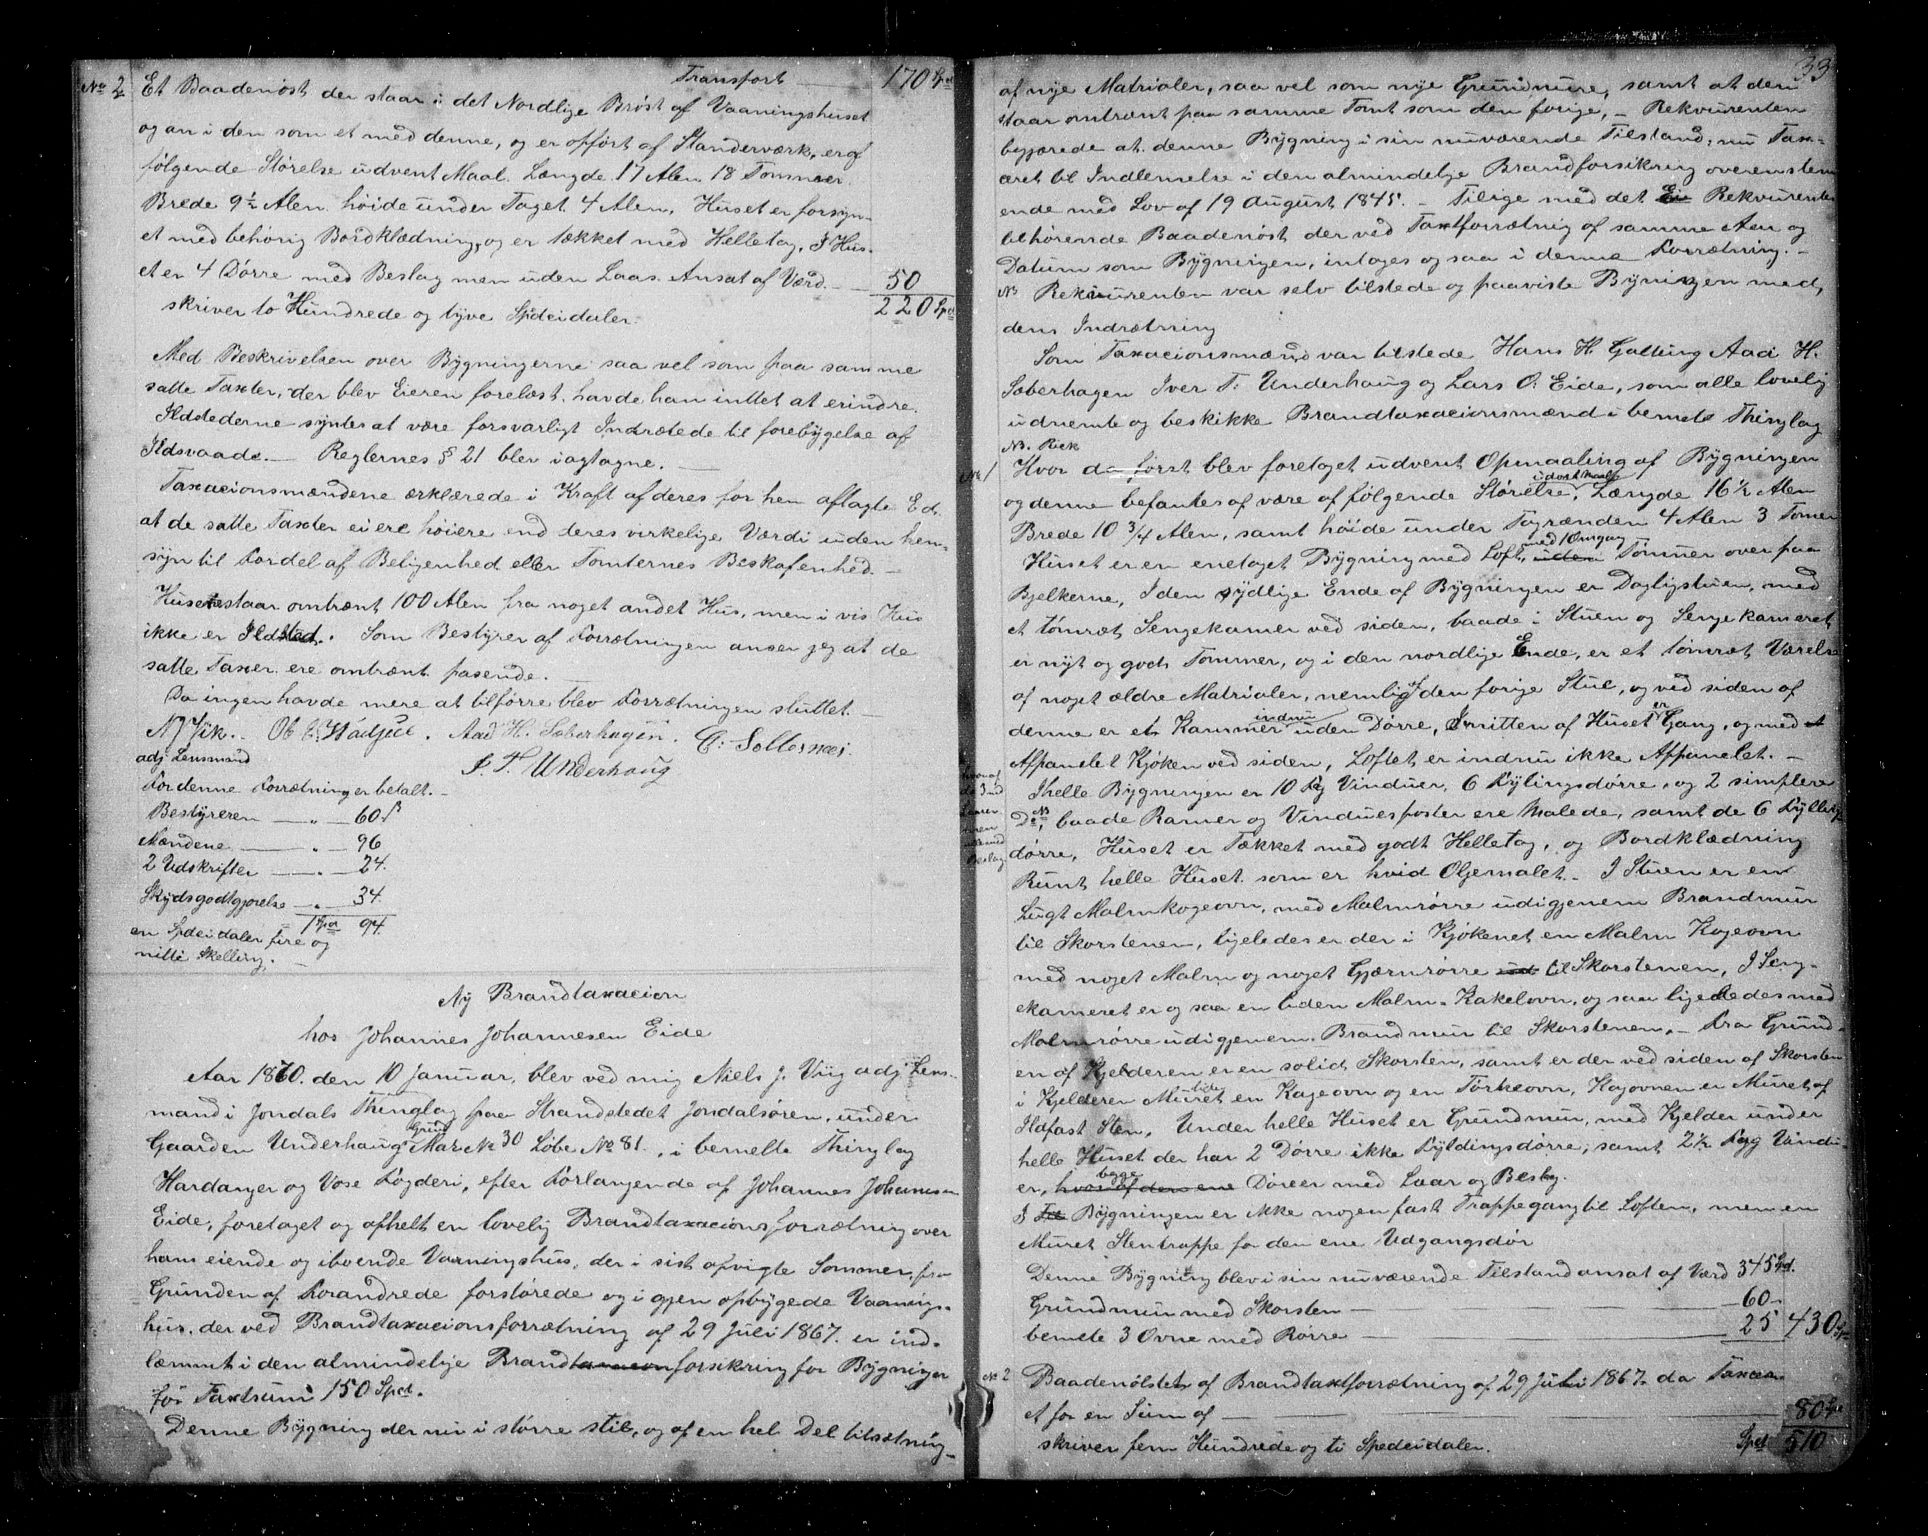 Transport 170 Spd
No 2 Et Baadenøst der staar i det Nordlige Brøst af Vaaningshuset
og an i den som et med denne, og er opført af Standerværk, er af
følgende Størelse udvent Maal. Længde 17 Alen 18 Tommer.
Brede 9½ Alen høide under Taget 4 Alen, Huset er forsyn-
et med behørig Bordklædning, og er tækket med Helletag, I Hus-
et er 4 Dørre med Beslag men uden Laas. Ansat af Værd. — 50
skriver to Hundrede og tyve Spdeidaler. 220 Spd
Med Beskrivelsen over Bygningerne saa vel som paa samme
satte Taxter, der blev Eieren forelæst, havde han inttet at erindre.
Ildstederne syntes at være forsvarligt Indrætede til forebygelse af
Ildsvaade. — Reglernes § 21 blev iagtagne. —
Taxacionsmændene ærklærede i Kraft af deres for hen aflagte Ed.
at de satte Taxter ei ere høiere end deres virkelige Værdi uden hen-
syn til Fordel af Beligenhed eller Tomternes Beskafenhed. —
Huset staar omtrænt 100 Alen fra noget andet Hus, men i vis Hus
ikke er Ildsted. Som Bestyrer af Forrætningen anser jeg at de
satte Taxer ere omtrænt pasende. —
Da ingen havde mere at tilførre blev Forrætningen sluttet. —
N J Vik. Ob Wadjul. Aad H. Soberhagen. C: Sollesnæs.
adj Lensmand I. T. Underhaug
For denne Forrætning er betalt. —
Bestyreren — „ — 60 ß
Mændene — „ — 96
2 Udskrifter — „ — 24.
Skydsgodtgjørelse — „ — 34
1 Spd 94
en Spdeidaler fire og
nitti Skelling.
Ny Brandtaxacion
hos Johannes Johannesen Eide
Aar 1870. den 10 Januar, blev ved mig Niels J. Viig adj Lens-
mand i Jondals Thinglag paa Strandstedet Jondalsøren, under
Gaarden Underhaug Grud Mar No 30 Løbe No 81., i bemelte Thinglag
Hardanger og Vose Fogderi, efter Forlangende af Johannes Johannesen
Eide, foretaget og afhelt en lovelig Brandtaxacionsforrætning over
hans eiende og iboende Vaaningshus, der i sist afvigte Sommer, fra
Grunden af Forandrede forstørede og igjen opbygede Vaanings-
hus. der ved Brandtaxacionsforrætning af 29 Juli 1867. er ind-
læmmt i den almindelige Brandtaxacion forsikring for Bygninger
for Taxtsum 150 Spd.
Denne Bygning der nu i større stil, og af en hel Del tilsætning
33
af nye Matrialer, saa vel som nye Grundmure, samt at den
staar omtrænt paa samme Tomt som den forige, — Rekvurenten
begjærede at denne Bygning i sin nuværende Tilstand, nu Tax-
æret til Indlemelse i den almindelige Brandforsikring overenstem
ende med Lov af 19 August 1845. — Tilige med det Ei Rekvurenten
tilhørende Baadenøst der ved Taxtforrætning af samme Aar og
Datum som Bygningen, intages og saa i denne Forrætning. —
NB Rekvurenten var selv tilstede og paaviste Bygningen med,
dens Indrætning
Som Taxacionsmænd var tilstede Hans H. Galtung Aad H.
Soberhagen Iver T. Underhaug og Lars O. Eide, som alle lovelig
udnemte og beskikke Brandtaxacionsmænd i bemete Thinglag
NB. Rek
No 1 Hvor da først blev foretaget udvent Opmaaling af Bygningen
og denne befantes af være af følgende Størelse, udvent Maal Længde 16½ Alen
Brede 10 ¾ Alen, samt høide under Tagrænden 4 Alen 3 Tomer
Huset er en enetaget Bygning med Loft, uden med 1 Omgang Tømmer over paa
Bjelkerne, I den sydlige Ende af Bygningen er Dagligstuen, med
et tømret Sengekamer ved siden, baade i Stuen og Sengekameret
er nyt og gods Tømmer, og i den nordlige Ende, er et tømret Værelse
af noget ældre Matrialer, nemlig af den forige Stue, og ved siden af
denne er et Kammer indnu uden Dørre, I mitten af Huset er Gang, og med et
Afpanelet Kjøken ved siden, Loftet er indnu ikke Afpanelet. —
I helle Bygningen er 10 Fg Vinduer, 6 Fylingsdørre, og 2 simplere
Do, baade Ramer og Vinduesposter ere Malede, samt de 6 Fyllings
dørre, Huset er Tækket med godt Helletag, og Bordklædning
Runt helle Huset som er hvid Oljemalet. — I Stuen er en
Lugt Malmkogeovn, med Malmrørre udigjenem Brandmur
til Skorstenen, ligeledes er der i Kjøkenet en Malm Kogeovn
med noget Malm og noget Gjærnrørre ud til Skorstenen, I Seng-
ekameret er og saa en liden Malm Kakelovn, og saa ligeledes med
Malmrørre udigjenem Brandmur til Skorstenen. — Fra Grund-
en af Kjelderen er en solid Skorsten, samt er der ved siden af Skorsten
i Kjelderen Muret en liden Kageovn og en Tørkeovn, Kagovnen er Muret af
Ildfast Sten. Under helle Huset er Grundmur, med Kjelder under
helle Huset der har 2 Dørre ikke Fyldingsdørre, samt 2½ Fag Vindu
er, hvor af den ene begge Dører med Laar og Beslag.
I Bygningen er ikke nogen fast Trappegang til Loften, men en
Muret Stentrappe for den ene Udgangsdør
Denne Bygning blev i sin nuværende Tilstand ansat af Værd 345 Spd.
Grundmur med Skorsten — 60 —
bemete 3 Ovne med Rørre — 25 430 Spd
No 2 Baadenøstet af Brandtaxtforrætning af 29 Juli 1867. da Taxer-
et for en Sum af — 80 Spd
skriver fem Hundrede og ti Spedeidaler. Spd 510